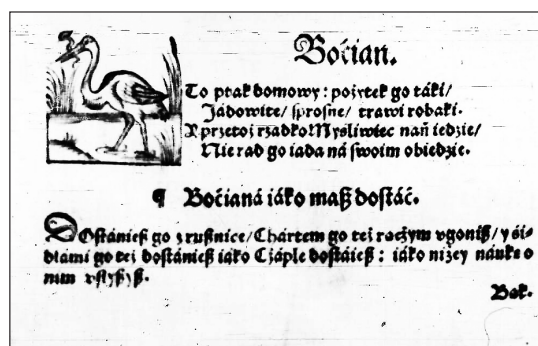 Boćian.
To ptak domowy: pożytek go táki/
Jádowite/ sprosne/ trawi robaki.
A przetoż rzadko Myśliwiec nań iedzie/
Nie rad go iada ná swoim obiedzie.
¶ Boćianá iáko maß dostáć.
DOstánieß go z rußnice/ Chártem go też rączym vgoniß/ y śi-
dłámi go też dostánieß iáko Czáple dostáieß: iáko niżey náukę o
nim vsłyßyß.
Bąk.